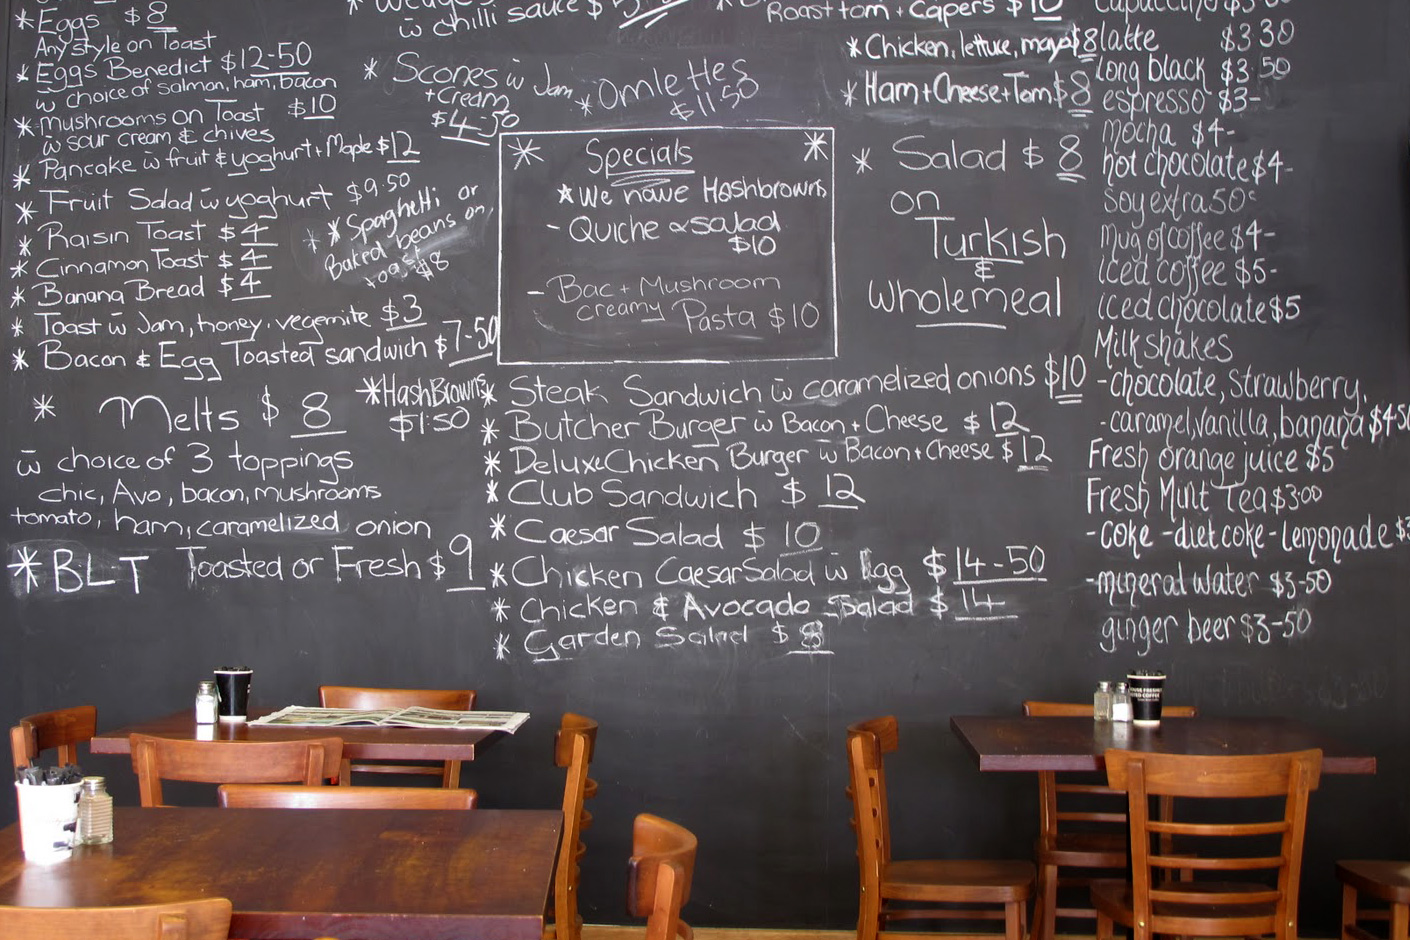 * Eggs $8
Any style on Toast
* Eggs Benedict $12-50
w̄ choice of salmon, ham, bacon
* Mushrooms on Toast $10
w̄ sour cream & chives
* Pancake w̄ fruit & yoghurt + Maple $12
* Fruit Salad w̄ yoghurt $9.50
* Raisin Toast $4
* Cinnamon Toast $4
* Banana Bread $4
* Toast w̄ Jam, honey, vegemite $3
* Bacon & Egg Toasted sandwich $7-50
* Spaghetti or
Baked beans on
toast $8
* Melts $8
w̄ choice of 3 toppings
chic, Avo, bacon, mushrooms
tomato, ham, caramelized onion
* BLT Toasted or Fresh $9
* HashBrowns
$1.50
w̄ chilli sauce $
* Scones w̄ Jam
+ Cream
$4-50
* Omlettes
$11.50
* Specials *
* We have Hashbrowns
- Quiche & salad
$10
- Bac + Mushroom
creamy Pasta $10
* Steak Sandwich w̄ caramelized onions $10
* Butcher Burger w̄ Bacon + Cheese $12
* Deluxe Chicken Burger w̄ Bacon + Cheese $12
* Club Sandwich $12
* Caesar Salad $10
* Chicken Caesar Salad w̄ Egg $14-50
* Chicken & Avocado Salad $14
* Garden Salad $8
Roast tom + Capers $10
* Chicken, lettuce, mayo $8
* Ham + Cheese + Tom $8
* Salad $8
on
Turkish
&
wholemeal
Capuccino
latte $3 30
long black $3.50
espresso $3-
mocha $4-
hot chocolate $4-
Soy extra 50c
Mug of coffee $4-
Iced coffee $5-
iced chocolate $5
Milkshakes
- chocolate, Strawberry,
- caramel, vanilla, banana $4-50
Fresh orange juice $5
Fresh Mint Tea $3.00
- coke - diet coke - lemonade $3
- mineral water $3-50
ginger beer $3-50